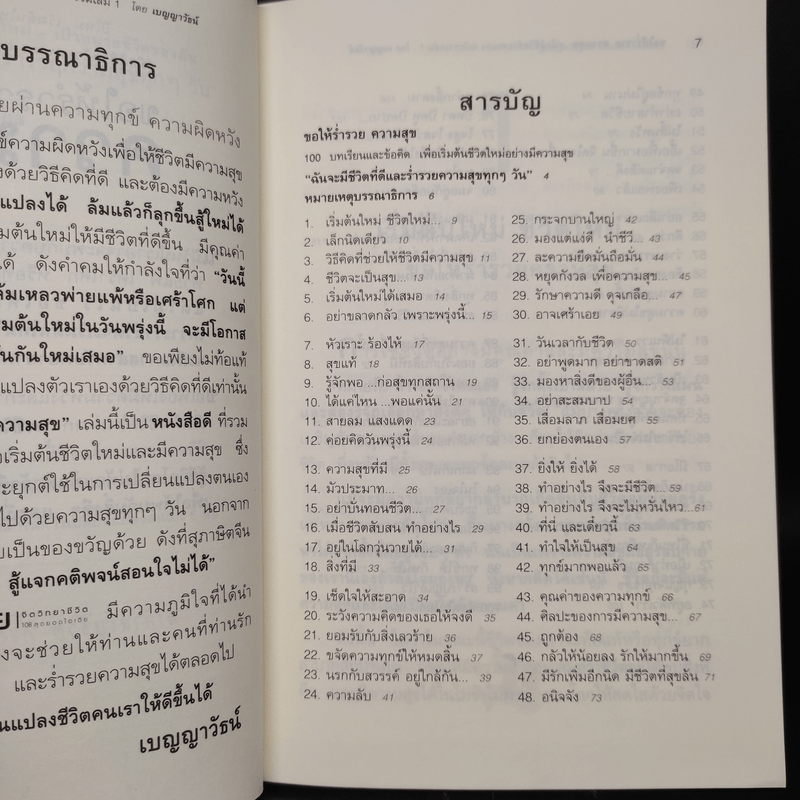 รมเล่ม 1 โดย เบญญาวัธน์
บรรณาธิการ
ยผ่านความทุกข์ ความผิดหวัง
ข์ความผิดหวังเพื่อให้ชีวิตมีความสุข
งด้วยวิธีคิดที่ดี และต้องมีความหวัง
แปลงได้ ล้มแล้วก็ลุกขึ้นสู้ใหม่ได้
มต้นใหม่ให้มีชีวิตที่ดีขึ้น มีคุณค่า
ได้ ดังคำคมให้กำลังใจที่ว่า "วันนี้
ล้มเหลวพ่ายแพ้หรือเศร้าโศก แต่
มต้นใหม่ในวันพรุ่งนี้ จะมีโอกาส
นกันใหม่เสมอ" ขอเพียงไม่ท้อแท้
แปลงตัวเราเองด้วยวิธีคิดที่ดีเท่านั้น
ความสุข" เล่มนี้เป็น หนังสือดี ที่รวม
อเริ่มต้นชีวิตใหม่และมีความสุข ซึ่ง
ะยุกต์ใช้ในการเปลี่ยนแปลงตนเอง
ไปด้วยความสุขทุกๆ วัน นอกจาก
บเป็นของขวัญด้วย ดังที่สุภาษิตจีน
สู้แจกคติพจน์สอนใจไม่ได้"
ย | จิตวิทยาชีวิต มีความภูมิใจที่ได้นำ
งจะช่วยให้ท่านและคนที่ท่านรัก
และร่ำรวยความสุขได้ตลอดไป
นแปลงชีวิตคนเราให้ดีขึ้นได้
เบญญาวัธน์
7
สารบัญ
ขอให้ร่ำรวย ความสุข
100 บทเรียนและข้อคิด เพื่อเริ่มต้นชีวิตใหม่อย่างมีความสุข
"ฉันจะมีชีวิตที่ดีและร่ำรวยความสุขทุกๆ วัน" 4
หมายเหตุบรรณาธิการ 6
1. เริ่มต้นใหม่ ชีวิตใหม่... 9
2. เล็กนิดเดียว 10
3. วิธีคิดที่ช่วยให้ชีวิตมีความสุข 11
4. ชีวิตจะเป็นสุข... 13
5. เริ่มต้นใหม่ได้เสมอ 14
6. อย่าขลาดกลัว เพราะพรุ่งนี้... 15
7. หัวเราะ ร้องไห้ 17
8. สุขแท้ 18
9. รู้จักพอ ...ก่อสุขทุกสถาน 19
10. ได้แค่ไหน ...พอแค่นั้น 21
11. สายลม แสงแดด 23
12. ค่อยคิดวันพรุ่งนี้ 24
13. ความสุขที่มี 25
14. มัวประมาท... 26
15. อย่าบั่นทอนชีวิต... 27
16. เมื่อชีวิตสับสน ทำอย่างไร 29
17. อยู่ในโลกวุ่นวายได้... 31
18. สิ่งที่มี 33
19. เช็ดใจให้สะอาด 34
20. ระวังความคิดของเธอให้จงดี 35
21. ยอมรับกับสิ่งเลวร้าย 36
22. ขจัดความทุกข์ให้หมดสิ้น 37
23. นรกกับสวรรค์ อยู่ใกล้กัน... 39
24. ความลับ 41
25. กระจกบานใหญ่ 42
26. มองแต่แง่ดี นำชีวี... 43
27. ละความยึดมั่นถือมั่น 44
28. หยุดกังวล เพื่อความสุข... 45
29. รักษาความดี ดุจเกลือ... 47
30. อาจเศร้าเอย 49
31. วันเวลากับชีวิต 50
32. อย่าพูดมาก อย่าขาดสติ 51
33. มองหาสิ่งดีของผู้อื่น... 53
34. อย่าสะสมบาป 54
35. เสื่อมลาภ เสื่อมยศ 55
36. ยกย่องตนเอง 57
37. ยิ่งให้ ยิ่งได้ 58
38. ทำอย่างไร จึงจะมีชีวิต... 59
39. ทำอย่างไร จึงจะไม่หวั่นไหว... 61
40. ที่นี่ และเดี๋ยวนี้ 63
41. ทำใจให้เป็นสุข 64
42. ทุกข์มากพอแล้ว 65
43. คุณค่าของความทุกข์ 66
44. ศิลปะของการมีความสุข... 67
45. ถูกต้อง 68
46. กลัวให้น้อยลง รักให้มากขึ้น 69
47. มีรักเพิ่มอีกนิด มีชีวิตที่สุขล้น 71
48. อนิจจัง 73